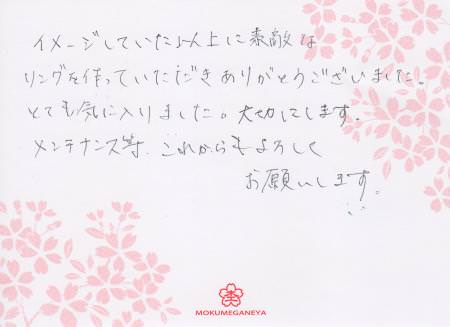 イメージしていた以上に素敵な
リングを作っていただきありがとうございました。
とても気に入りました。大切にします。
メンテナンス等、これからもよろしく
お願いします。
MOKUMEGANEYA